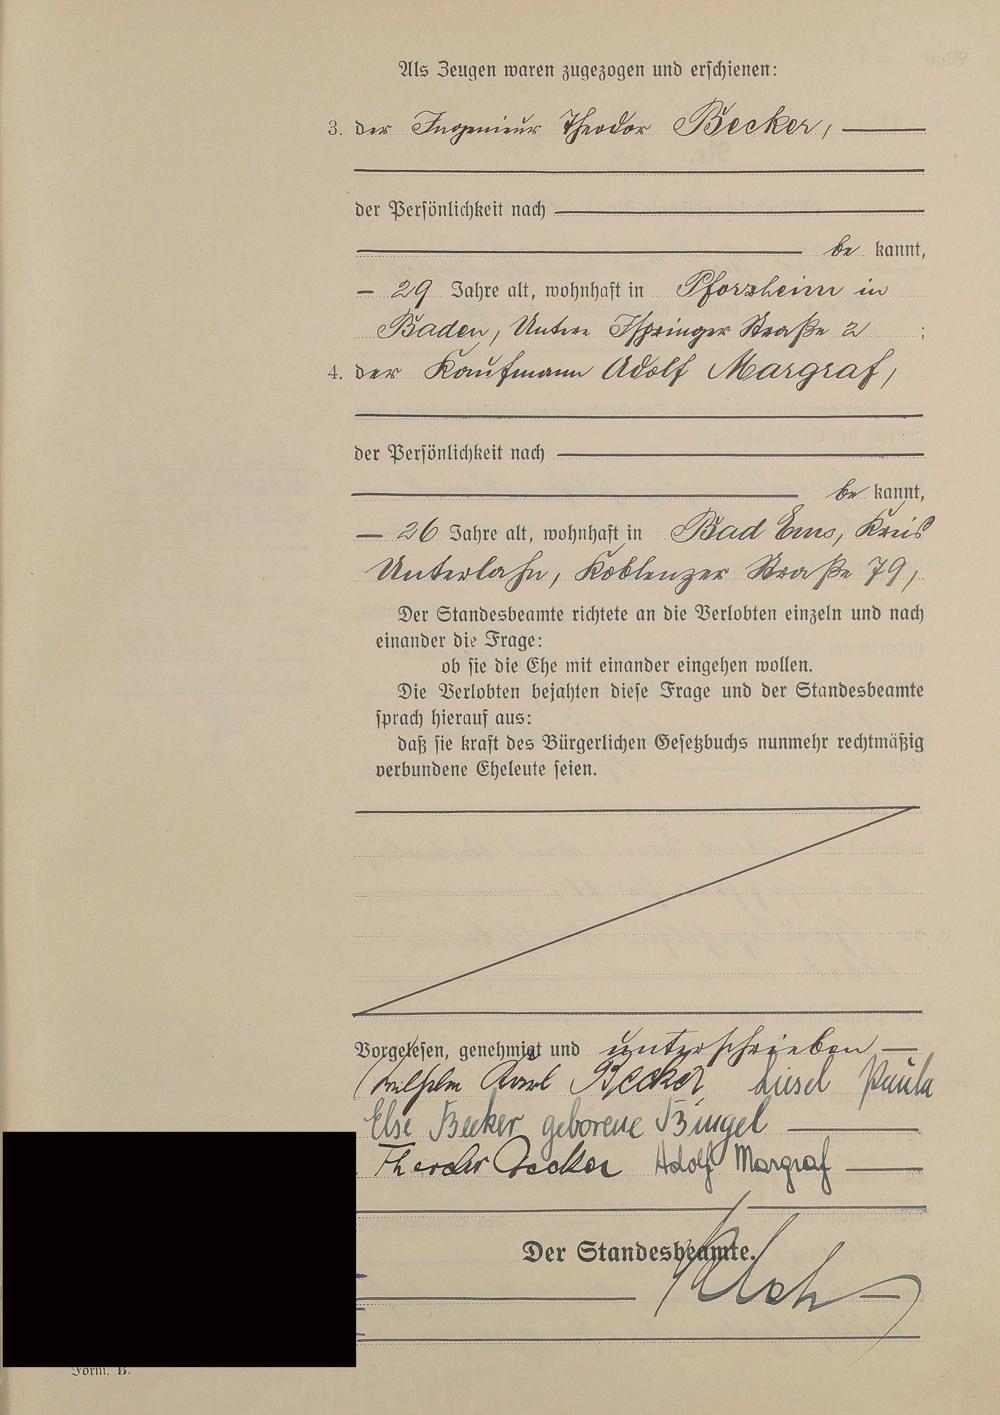 Als Zeugen waren zugezogen und erschienen:
3. der Ingenieur Theodor Becker,
der Persönlichkeit nach
be kannt,
29 Jahre alt, wohnhaft in Pforzheim in
Baden, Untere Ispringer Straße 2 ;
4. der Kaufmann Adolf Margraf,
der Persönlichkeit nach
be kannt,
26 Jahre alt, wohnhaft in Bad Ems, Kreis
Unterlahn, Koblenzer Straße 79,
Der Standesbeamte richtete an die Verlobten einzeln und nach
einander die Frage:
ob sie die Ehe mit einander eingehen wollen.
Die Verlobten bejahten diese Frage und der Standesbeamte
sprach hierauf aus:
daß sie kraft des Bürgerlichen Gesetzbuchs nunmehr rechtmäßig
verbundene Eheleute seien.
Vorgelesen, genehmigt und unterschrieben
Wilhelm Karl Becker Liesel Paula
Else Becker geborene Bingel
Theodor Becker Adolf Margraf
Der Standesbeamte.
Form. B.